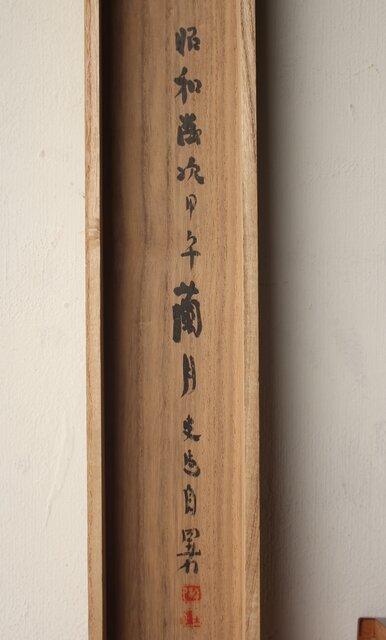 昭和歳次甲午蘭月史邑自署